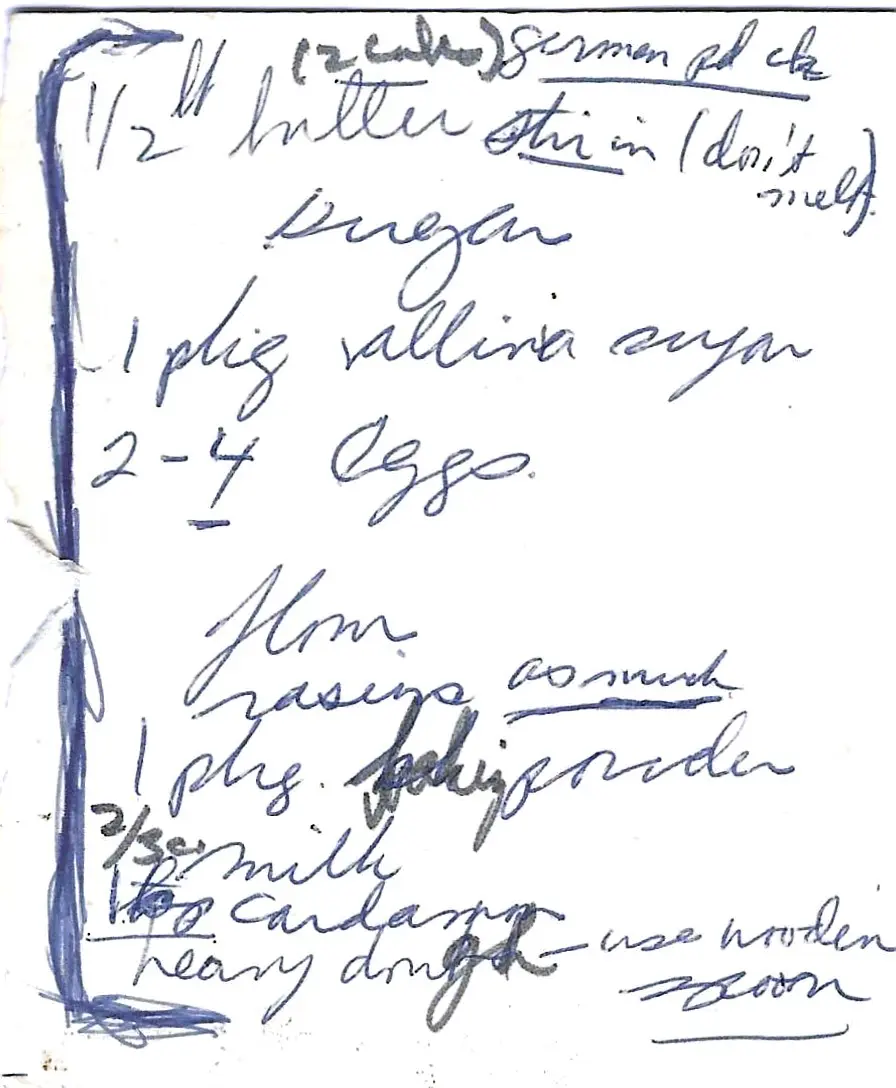 (2 cakes) german pd ck
1/2 lb butter stir in (don't melt)
sugar
1 pkg vallina sugar
2-4 eggs.
flour
rasins as much
1 pkg. baking powder
2/3 c. milk
1 tsp cardamon
heavy dough - use wooden spoon